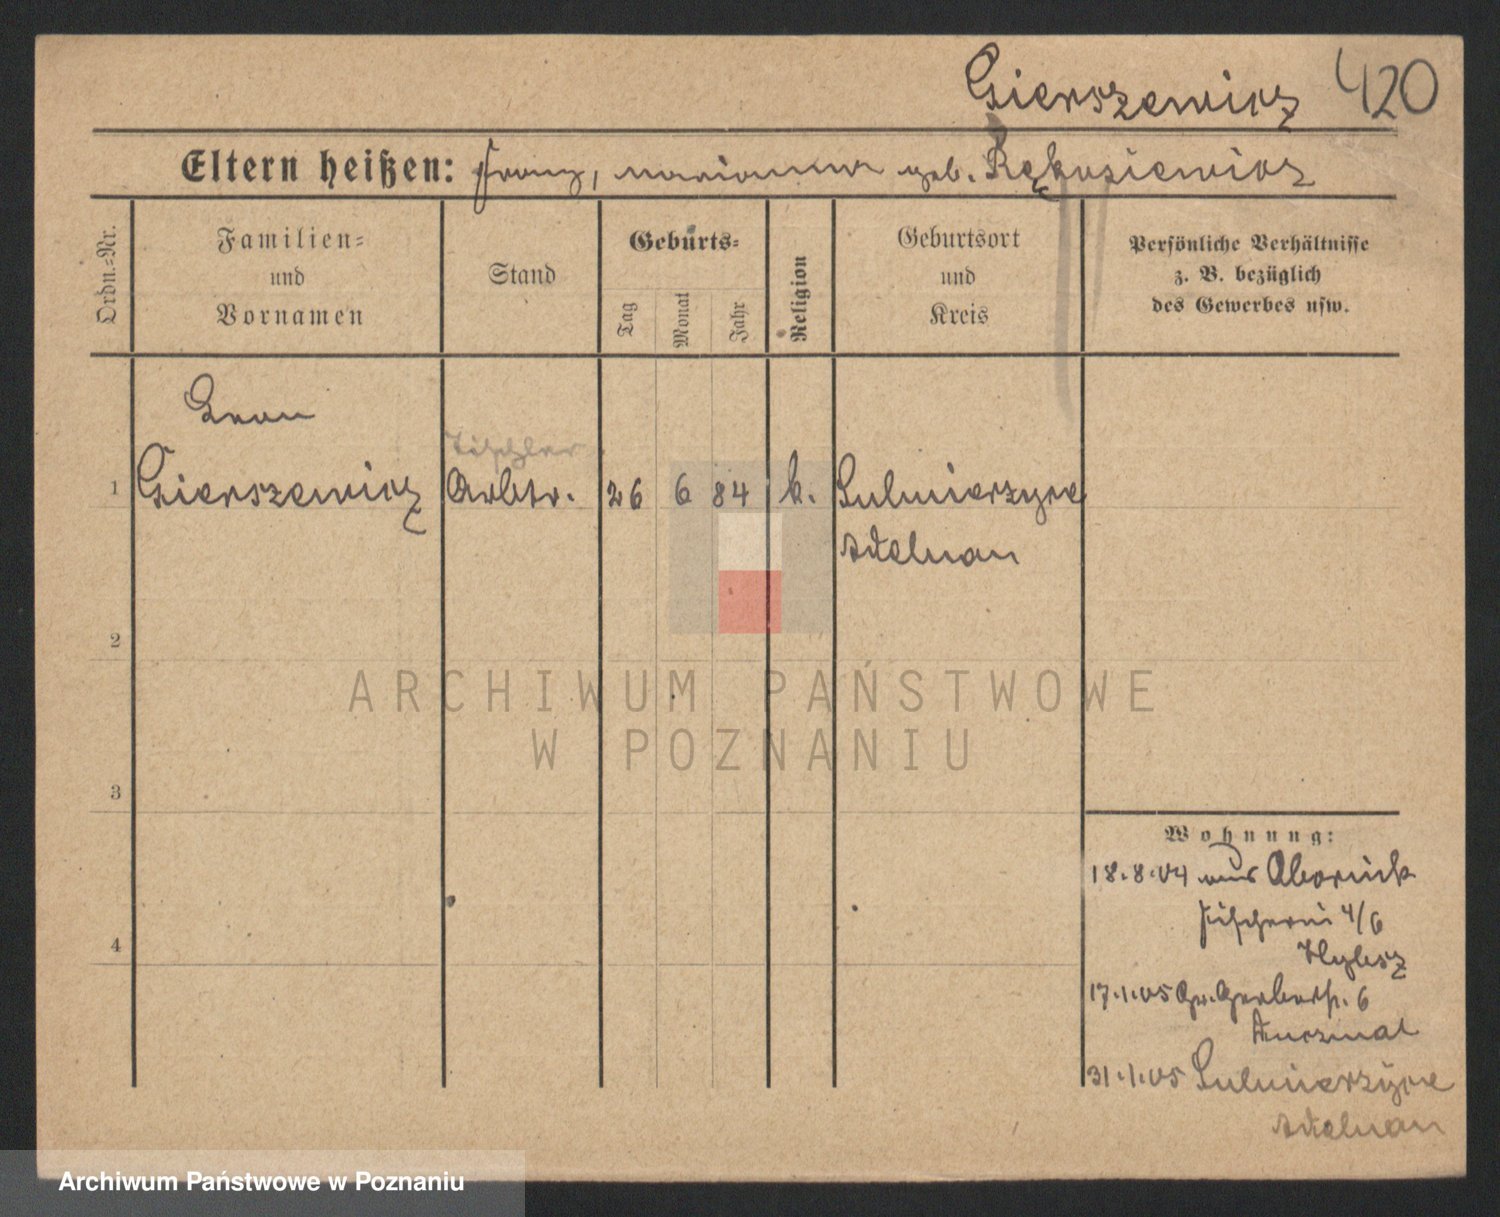 Gierszewicz 420
Eltern heißen: Franz, Marianna geb. Rękosiewicz
Ordn.-Nr.
Familien-
und
Vornamen
Stand
Geburts-
Tag
Monat
Jahr
Religion
Geburtsort
und
Kreis
Persönliche Verhältnisse
z. B. bezüglich
des Gewerbes usw.
Leon
Tischler
1 Gierszewicz Arbtr. 26 6 84 k. Sulmierzyce
Adelnau
2
ARCHIWUM PAŃSTWOWE
W POZNANIU
3
Wohnung:
18.8.04 aus Obornick
Fischerei 4/6
17.1.05 Gr. Gerberstr. 6
4
31.1.05 Sulmierzyce
Adelnau
Archiwum Państwowe w Poznaniu